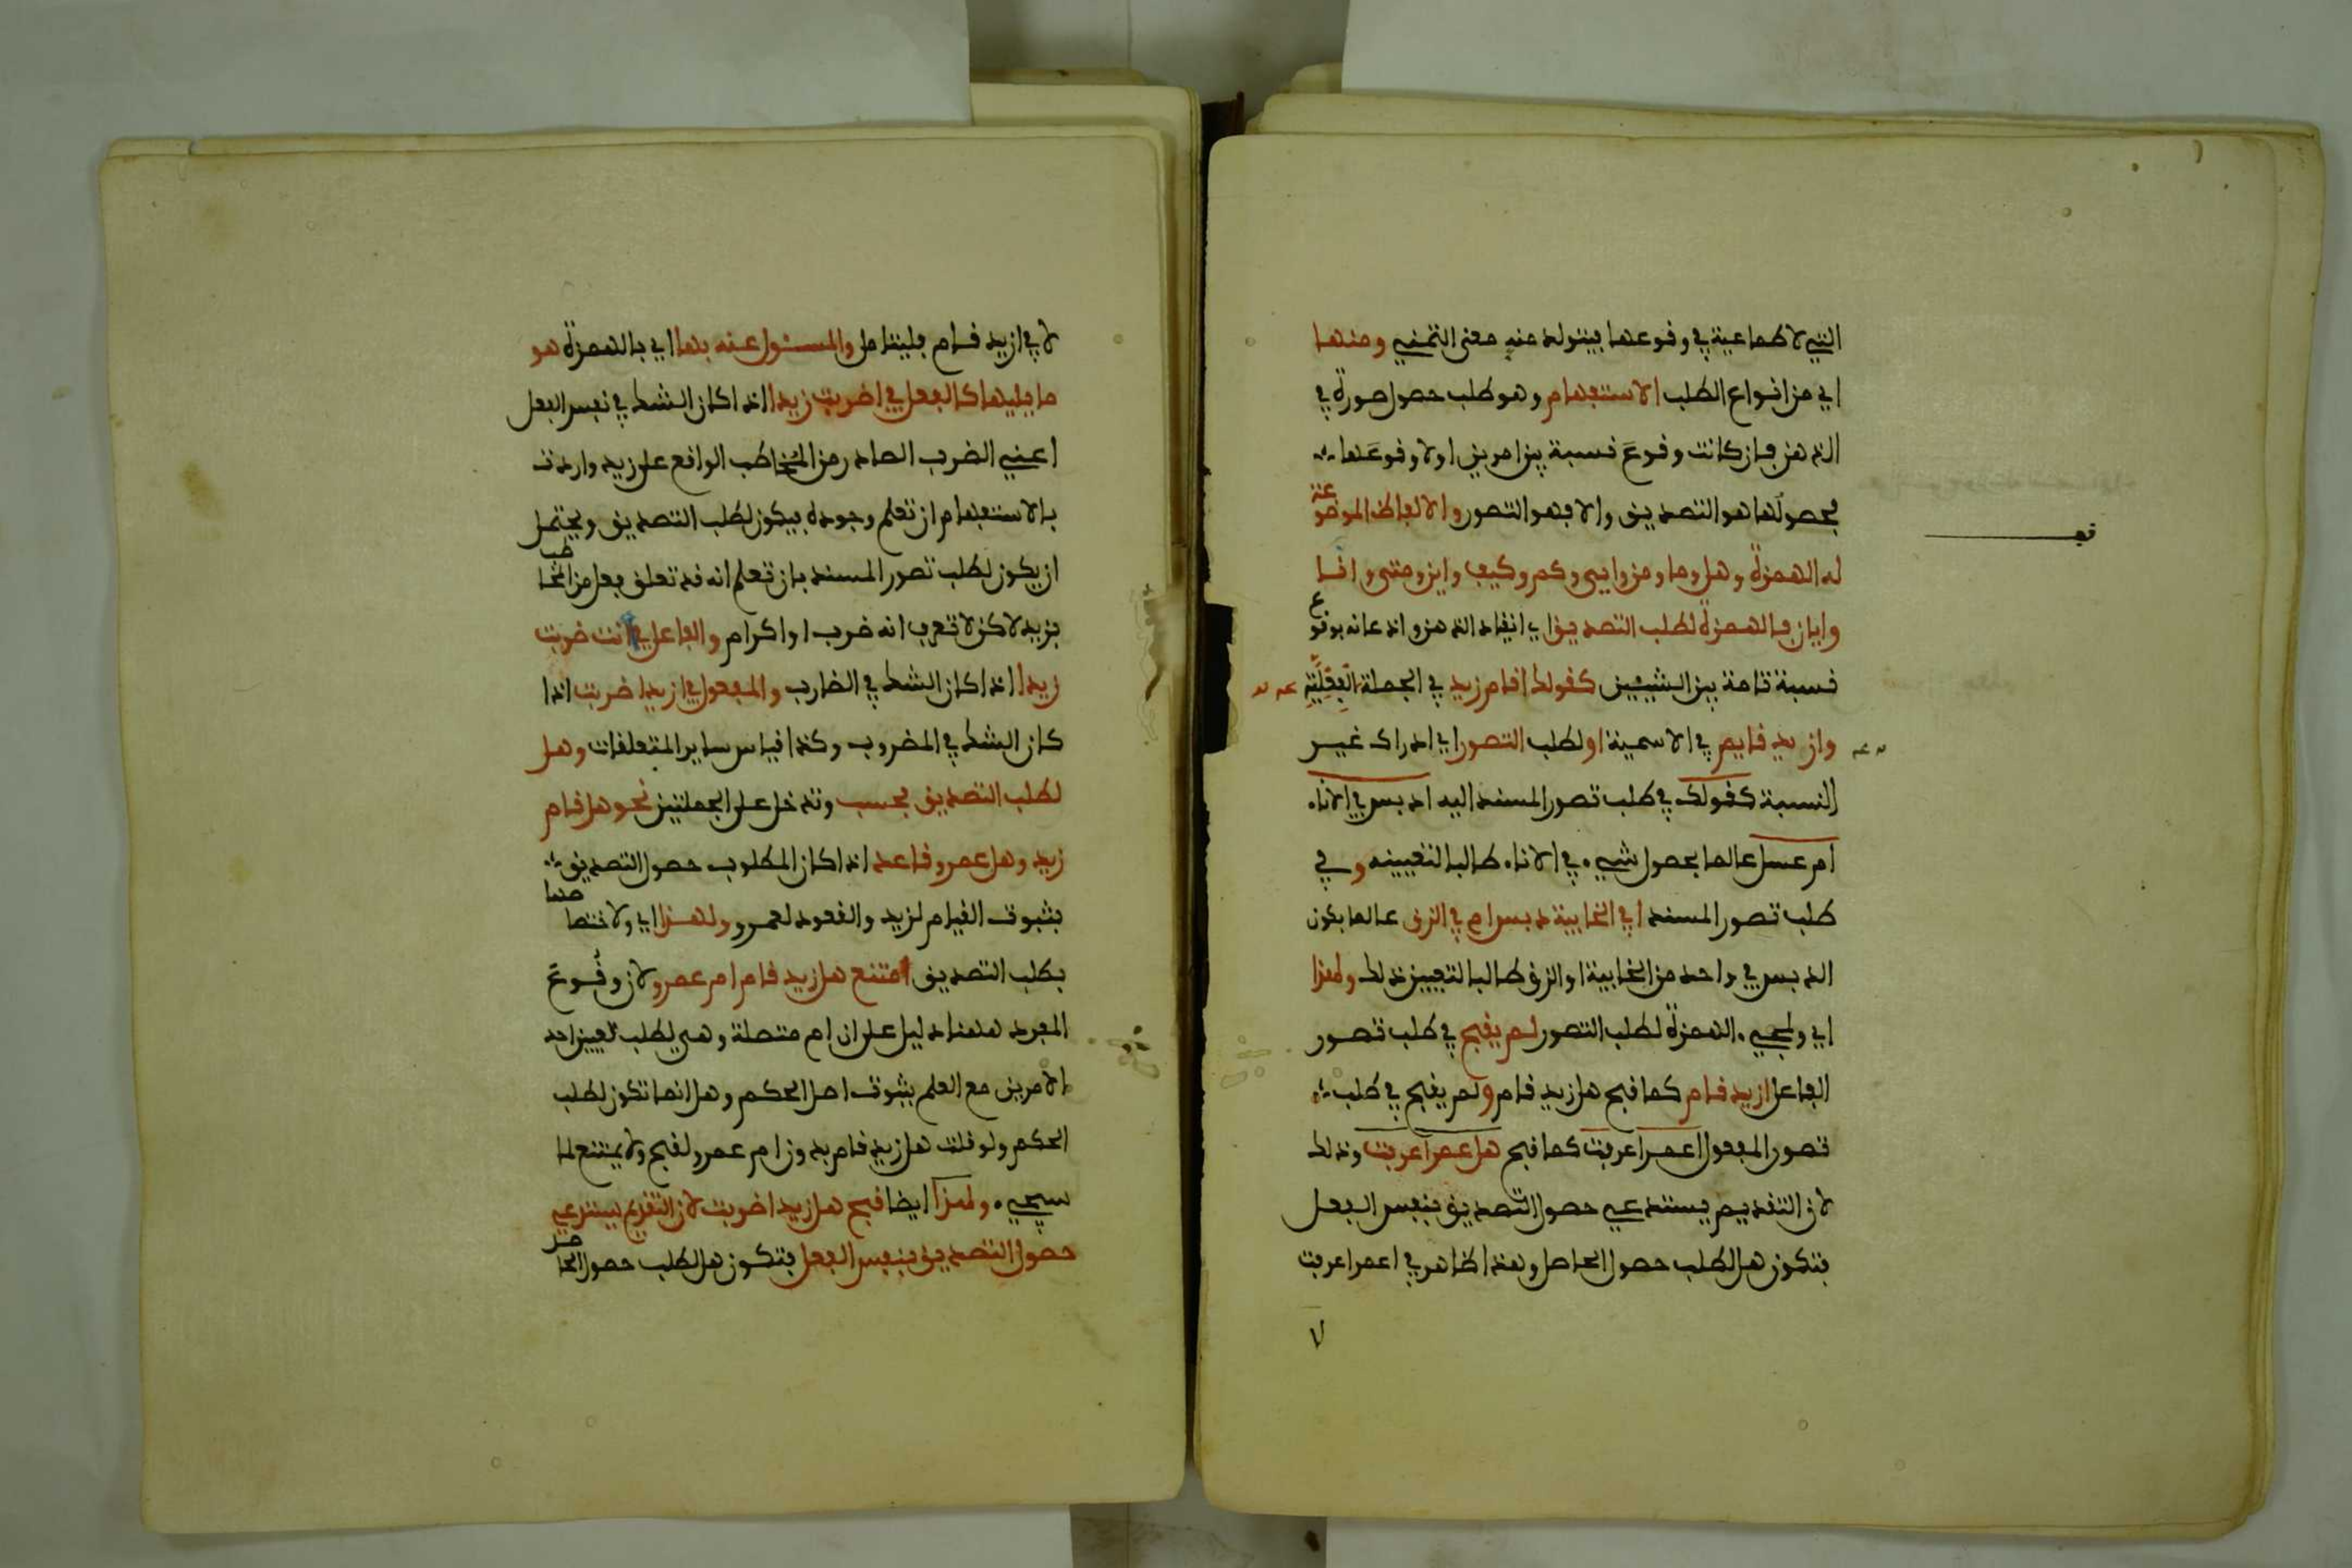 التي لا طماعية في وقوعها فيتولد منه معنى التمني ومنها
اي من انواع الطلب الاستفهام وهو طلب حصول صورة في
الذهن فان كانت وقوع نسبة بين امرين اولا وقوعها
فحصولها هو التصديق والا فهو التصور والالفاظ الموضوعة
له الهمزة وهل وما ومن واي وكم وكيف واين ومتى وانا
وايان فالهمزة لطلب التصديق اي انقياد الذهن واذعانه بوقوع
نسبة تامة بين الشيئين كقولك اقام زيد في الجملة الفعلية
وازيد قايم في الاسمية او لطلب التصور اي ادراك غير
النسبة كقولك في طلب تصور المسند اليه ادبس في الاناء
ام عسل عالما بحصول شيء في الاناء طالبا لتعيينه وفي
طلب تصور المسند افي الخابية دبسك ام في الزق عالما بكون
الدبس في واحد من الخابية او الزق طالبا لتعيين ذلك ولهذا
اي ولمجيء الهمزة لطلب التصور لم يقبح في طلب تصور
الفاعل ازيد قام كما قبح هل زيد قام ولم يقبح في طلب
تصور المفعول اعمرا عرفت كما قبح هل عمرا عرفت وذلك
لان التقديم يستدعي حصول التصديق بنفس الفعل
فتكون هل لطلب حصول الحاصل وهذا ظاهر في اعمرا عرفت
٧
لا في ازيد قام فليتامل والمسئول عنه بها اي بالهمزة هو
ما يليها كالفعل في اضربت زيدا اذا كان الشك في نفس الفعل
اعني الضرب الصادر من المخاطب الواقع على زيد واردت
بالاستفهام ان تعلم وجوده فيكون لطلب التصديق ويحتمل
ان يكون لطلب تصور المسند بان تعلم انه قد تعلق فعل من المخاطب
بزيد لاكن لا تعرف انه ضرب او اكرام والفاعل في اانت ضربت
زيدا اذا كان الشك في الضارب والمفعول في ازيدا ضربت اذا
كان الشك في المضروب وكذا قياس ساير المتعلقات وهل
لطلب التصديق فحسب وتدخل على الجملتين نحو هل قام
زيد وهل عمرو قاعد اذا كان المطلوب حصول التصديق
بثبوت القيام لزيد والقعود لعمرو ولهذا اي ولاختصاصها
بطلب التصديق امتنع هل زيد قام ام عمرو لان وقوع
المفرد ههنا دليل على ان ام متصلة وهي لطلب تعيين احد
الامرين مع العلم بثبوت اصل الحكم وهل انما تكون لطلب
الحكم ولو قلت هل زيد قام بدون ام عمرو لقبح ولا يمتنع لما
سيجيء ولهذا ايضا قبح هل زيدا ضربت لان التقديم يستدعي
حصول التصديق بنفس الفعل فتكون هل لطلب حصول الحاصل